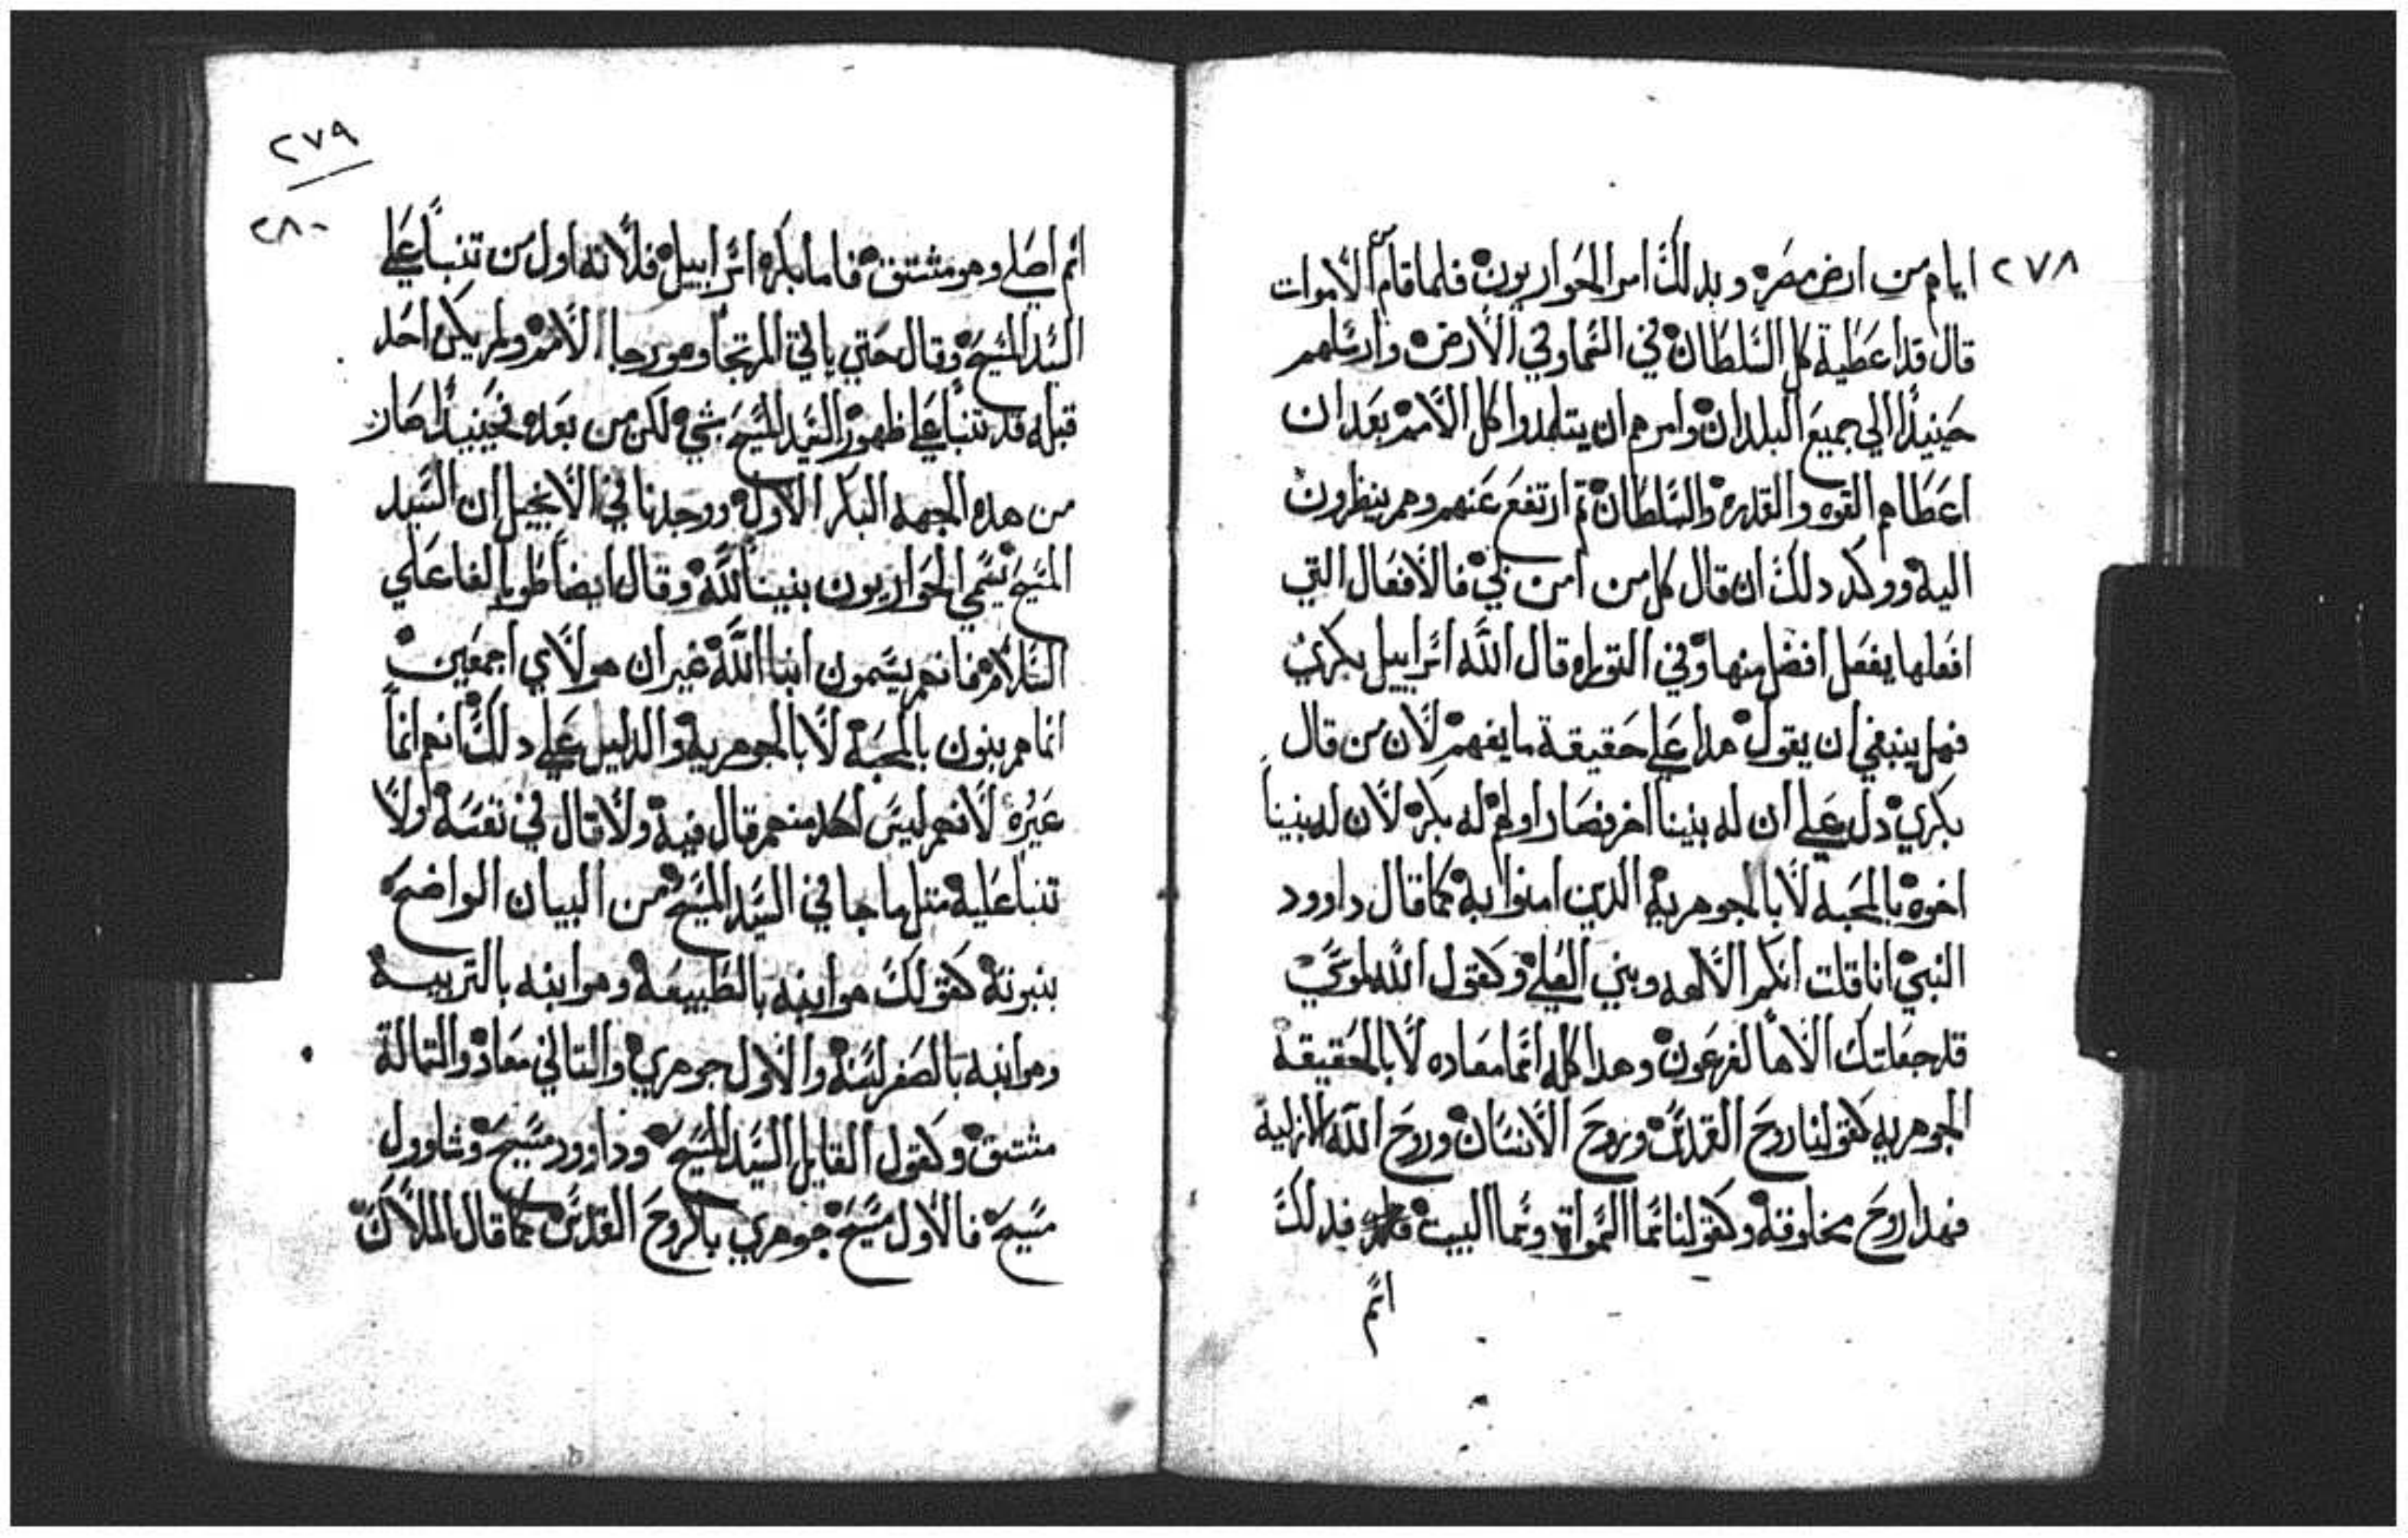 ٢٧٨
ايام من ارض مصر وبدلك امر الحواريون فلما قام من الاموات
قال قد اعطية كل السلطان في السما وفي الارض وارسلهم
حينيدا الي جميع البلدان وامرهم ان يتلمدوا كل الامم بعد ان
اعطاهم القوه والقدرة والسلطان تم ارتفع عنهم وهم ينظرون
اليه ووكد دلك ان قال كل من امن بي فالافعال التي
افعلها يفعل افضل منها وفي التوراه قال الله اسراييل بكري
فهل ينبغي ان يقول هدا علي حقيقة ما يفهم لان من قال
بكري دل علي ان له بنينا اخر فصار اولهم له بكر لان له بنينا
اخوة بالمحبة لا بالجوهرية الدين امنوا به كما قال داوود
النبي انا قلت انكم الالهه وبني العلي وكقول الله لموسي
قد جعلتك الاها لفرعون وهدا كله انما معاده لا بالحقيقة
الجوهريه كقولنا روح القدس وروح الانسان وروح الله الازلية
فهدا روح مخلوقة وكقولنا سما السموات وسما البيت فدلك
اسم
٢٧٩
٢٨٠
اسم اصلي وهو مشتق فاما بكر اسراييل فلانه اول من تنبا علي
السيد المسيح وقال حتي ياتي المرتجا وهو رجا الامم ولم يكن احد
قبله قد تنبا علي ظهور السيد المسيح بشي لكن من بعده فحينيدا صار
من هده الجهه البكر الاول ووجدنا في الانجيل ان السيد
المسيح يسمي الحواريون بنينا لله وقال ايضا طوبا لفاعلي
السلام فانهم يسمون ابنا الله غير ان هولاي اجمعين
انما هم بنون بالمحبة لا بالجوهرية والدليل علي دلك انهم انما
غيره لانهم ليس احد منهم قال فيه ولا قال في نفسه ولا
تنبا عليه متل ما جا في السيد المسيح من البيان الواضح
بنبوته كقولك هو ابنه بالطبيعة وهو ابنه بالتربيه
وهو ابنه بالصفر لسنة والاول جوهري والتاني معاد والتالة
مشتق وكقول القايل السيد المسيح وداوود مسيح وشاوول
مسيح فالاول مسيح جوهري بالروح القدس كما قال الملاك